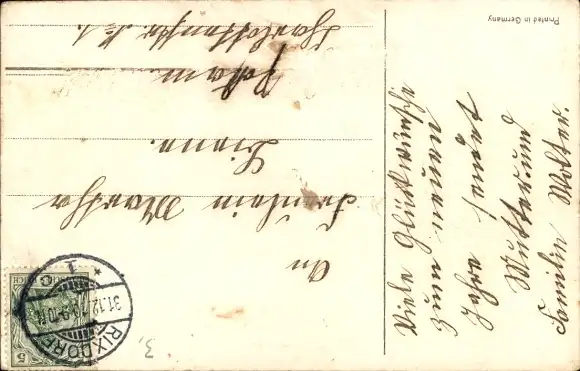 Printed in Germany
Viele Glückwünsche
zum neuen
Jahre sendet
Mutter und
Familie Wolter.
An
Fräulein Martha
Potsdam.
RIXDORF
31.12.
1
C
5
3.